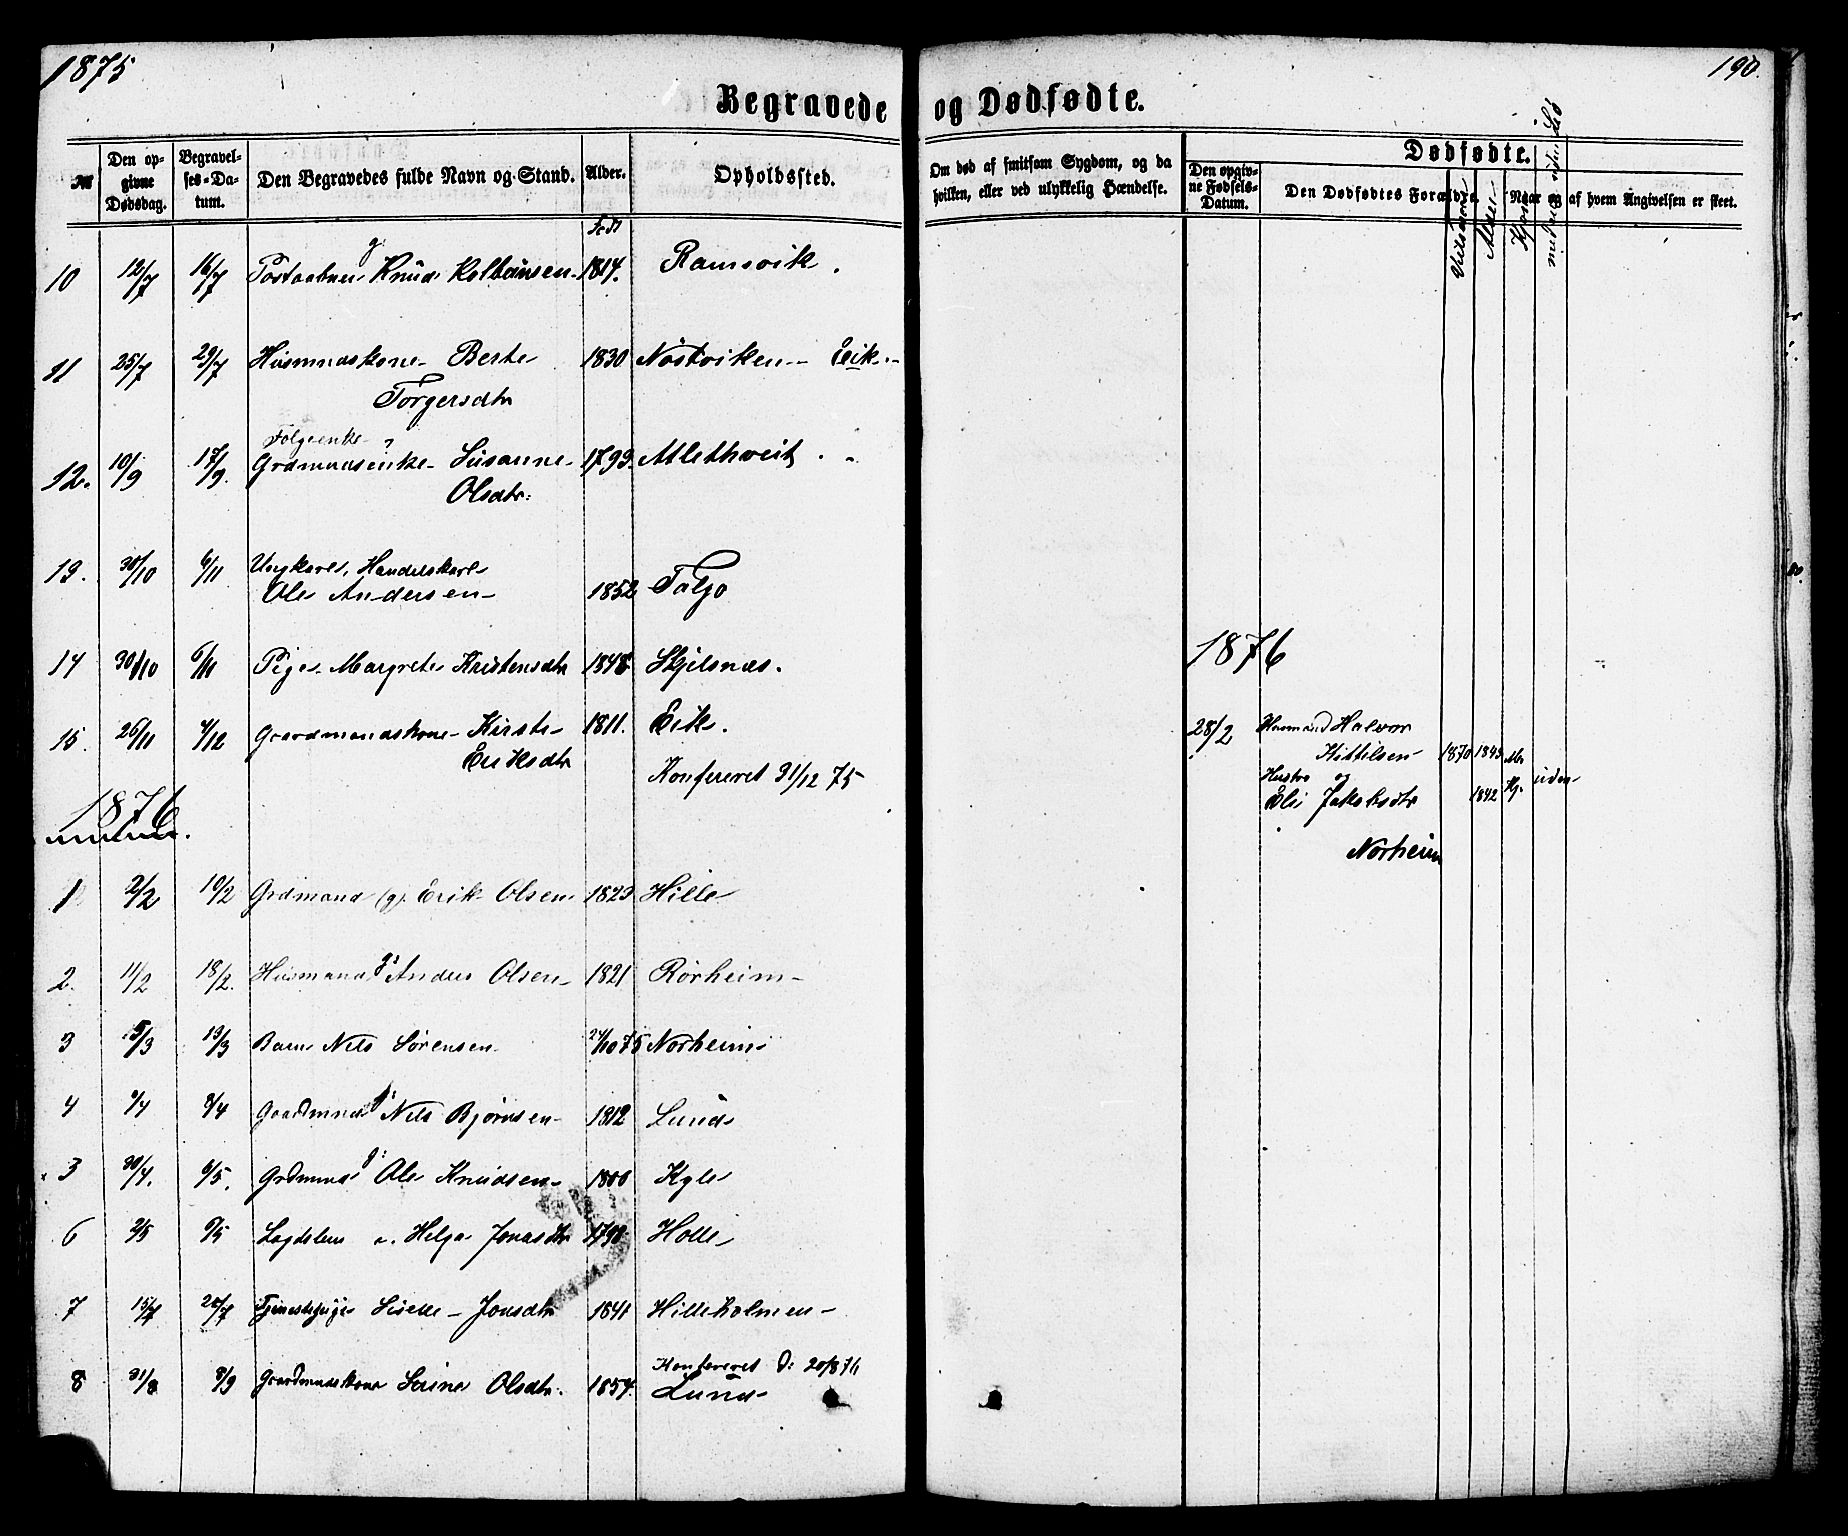 1875
190.
Begravede og Dødfødte.
№
Den opgivne Dødsdag.
Begravelses-Datum.
Den Begravedes fulde Navn og Stand.
Alder.
Opholdssted.
Om død af smitsom Sygdom, og da hvilken, eller ved ulykkelig Hændelse.
Dødfødte.
Den opgivne Fødsels-Datum.
Den Dødfødtes Forældre.
Naar og af hvem Angivelsen er skeet.
Alder
Kjøn
10 12/7 16/7 Postaabner g Knud Kolbeinsen 1814. Ramsvik.
11 25/7 29/7 Husmndskone Berte 1830 Nøstviken Eik
Torgersdtr
Følgeenke
12. 10/9 17/9. Grdmandsenke Susanne 1793. Atlethveit
Olsdtr:
13. 30/10 6/11 Ungkarl, Handelskarl
Ole Andersen 1852 Talgø
14 30/10 6/11 Pige Margrete Kristensdtr 1848 Skjelsnæs.
15. 26/11 4/12 Gaardmandskone Kirste 1811. Eik.
Eriksdtr
Konfereret 31/12 75
1876
1 2/2 10/2 Grdmand (g). Erik Olsen 1823 Hille
2. 11/2 18/2. Husmand g: Anders Olsen 1821 Rørheim
3 5/3 19/3 Barn Nils Sørensen 24/10 75 Norheim
4 /4 8/4 Gaardmnd g: Nils Bjørnsen 1812 Lund
3 30/4. 6/5. Grdmnd g: Ole Knudsen 1800 Kyle
6 2/5 6/5 Lægdslem Helga Jonasdtr 1790 Holle
7 15/7 20/7 Tjenestepige Lisette Jonsdtr 1841 Hilleholmen
Konfereret d: 20/8 76
8 31/8 8/9 Gaardmndskone Serine Olsdtr. 1854. Lund
1876
28/2 Husmand Halvor
Kittilsen 1870 1843
Hustru og
Eli Jakobsdtr 1842 Kj. uden
Norheim